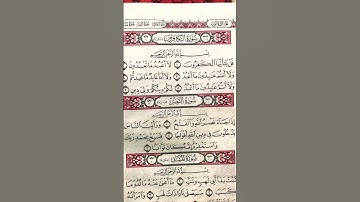 سُورَةُ الكَافِرُونَ
بِسْمِ اللَّهِ الرَّحْمَٰنِ الرَّحِيمِ
قُلْ يَا أَيُّهَا الْكَافِرُونَ لَا أَعْبُدُ مَا تَعْبُدُونَ
وَلَا أَنْتُمْ عَابِدُونَ مَا أَعْبُدُ وَلَا أَنَا عَابِدٌ مَا عَبَدْتُمْ
وَلَا أَنْتُمْ عَابِدُونَ مَا أَعْبُدُ لَكُمْ دِينُكُمْ وَلِيَ دِينِ
سُورَةُ النَّصْرِ
بِسْمِ اللَّهِ الرَّحْمَٰنِ الرَّحِيمِ
إِذَا جَاءَ نَصْرُ اللَّهِ وَالْفَتْحُ وَرَأَيْتَ النَّاسَ
يَدْخُلُونَ فِي دِينِ اللَّهِ أَفْوَاجًا فَسَبِّحْ بِحَمْدِ
وَاسْتَغْفِرْهُ إِنَّهُ كَانَ تَوَّابًا
سُورَةُ
بِسْمِ اللَّهِ الرَّحْمَٰنِ الرَّحِيمِ
تَبَّتْ يَدَا أَبِي لَهَبٍ وَتَبَّ مَا أَغْنَى عَنْهُ مَالُهُ وَمَا
كَسَبَ سَيَصْلَى نَارًا ذَاتَ لَهَبٍ وَامْرَأَتُهُ